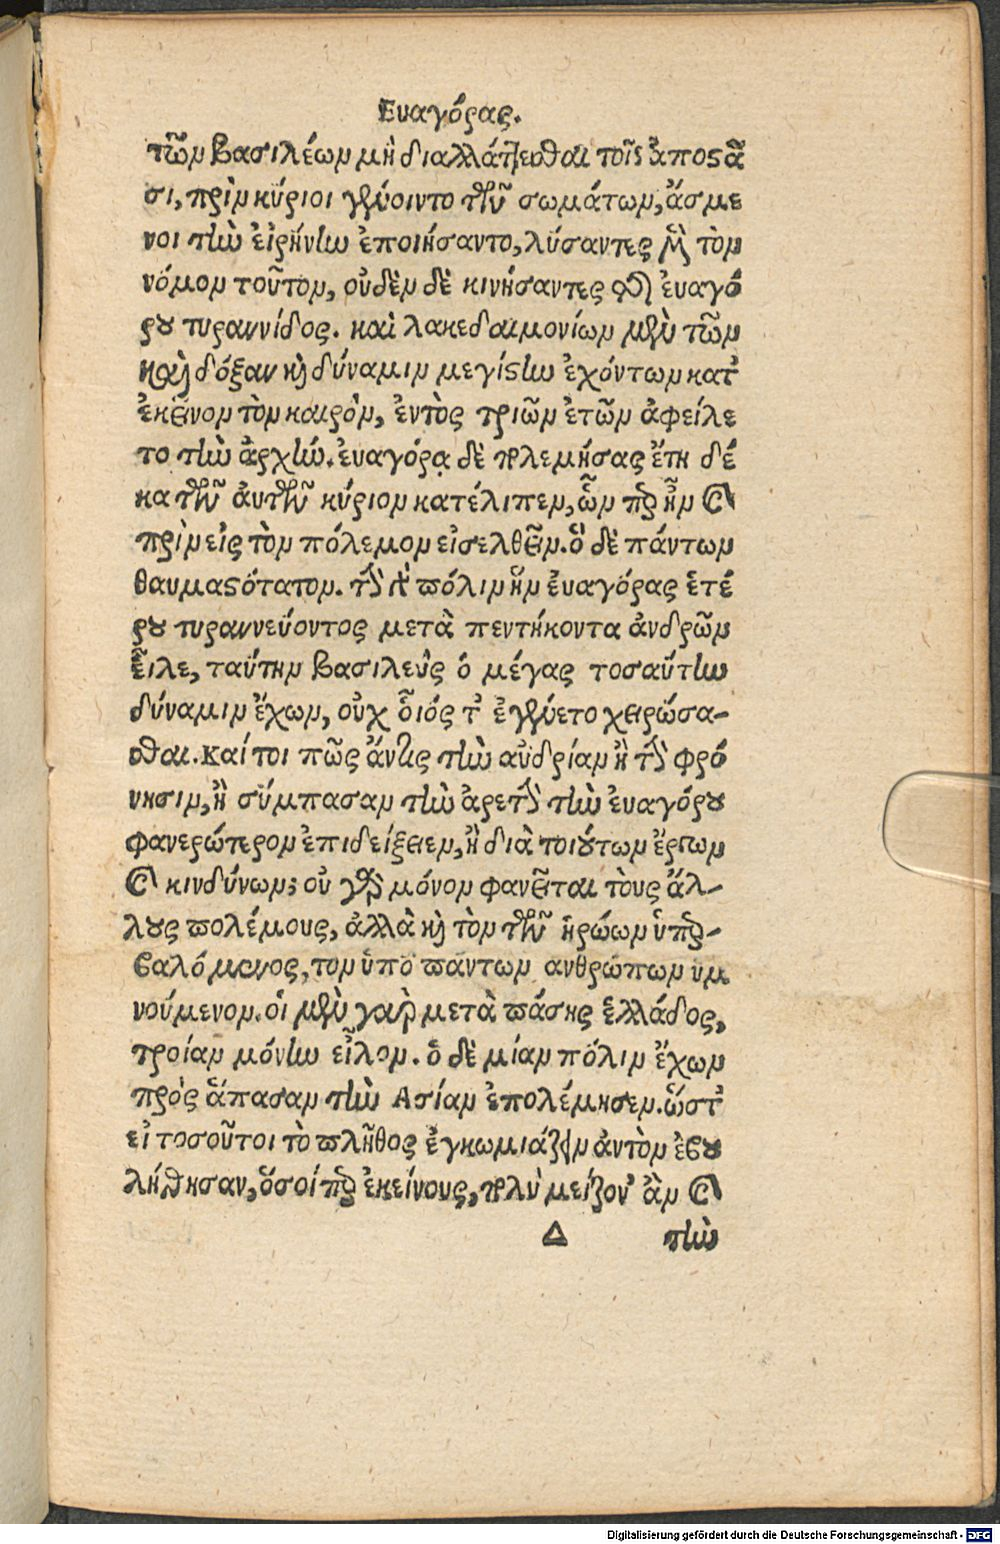 Ευαγόρας.
τῶν βασιλέων μὴ διαλλάττεσθαι τοῖς ἀποστᾶ
σι, πρὶν κύριοι γένοιντο τῶν σωμάτων, ἄσμε
νοι τὴν εἰρήνην ἐποιήσαντο, λύσαντες μὲν τὸν
νόμον τοῦτον, οὐδὲν δὲ κινήσαντες τῆς ἐυαγό
ρου τυραννίδος. καὶ λακεδαιμονίων μὲν τῶν
καὶ δόξαν καὶ δύναμιν μεγίστην ἐχόντων κατ'
ἐκεῖνον τὸν καιρὸν, ἐντὸς τριῶν ἐτῶν ἀφείλε
το τὴν ἀρχήν. ἐυαγόρᾳ δὲ πολεμήσας ἔτη δέ
κα τῶν ἀυτῶν κύριον κατέλιπεν, ὧν περ ἦν καὶ
πρὶν εἰς τὸν πόλεμον εἰσελθεῖν. ὃ δὲ πάντων
θαυμαστότατον. τὴν γὰρ πόλιν ἣν ἐυαγόρας ἑτέ
ρου τυραννεύοντος μετὰ πεντήκοντα ἀνδρῶν
εἷλε, ταύτην βασιλεὺς ὁ μέγας τοσαύτην
δύναμιν ἔχων, οὐχ οἷός τ' ἐγένετο χειρώσα-
σθαι. Καίτοι πῶς ἄν τις τὴν ανδρίαν ἢ τὴν φρό
νησιν, ἢ σύμπασαν τὴν ἀρετὴν τὴν ἐυαγόρου
φανερώτερον ἐπιδείξειεν, ἢ διὰ τοιούτων ἔργων
καὶ κινδύνων; οὐ γὰρ μόνον φανεῖται τοὺς ἄλ-
λους πολέμους, ἀλλὰ καὶ τὸν τῶν ἡρώων ὑπερ-
βαλόμενος, τον ὑπὸ πάντων ανθρώπων ὑμ
νούμενον. οἱ μὲν γαρ μετὰ πάσης ἑλλάδος,
τροίαν μόνην εἷλον. ὁ δὲ μίαν πόλιν ἔχων
πρὸς ἅπασαν τὴν Ασίαν ἐπολέμησεν. ὥστ'
εἰ τοσοῦτοι τὸ πλῆθος ἐγκωμιάζειν ἀυτὸν ἐβου
λήθησαν, ὅσοί περ ἐκείνους, πολὺ μείζον' ἂν καὶ
Δ τὴν
Digitalisierung gefördert durch die Deutsche Forschungsgemeinschaft - DFG